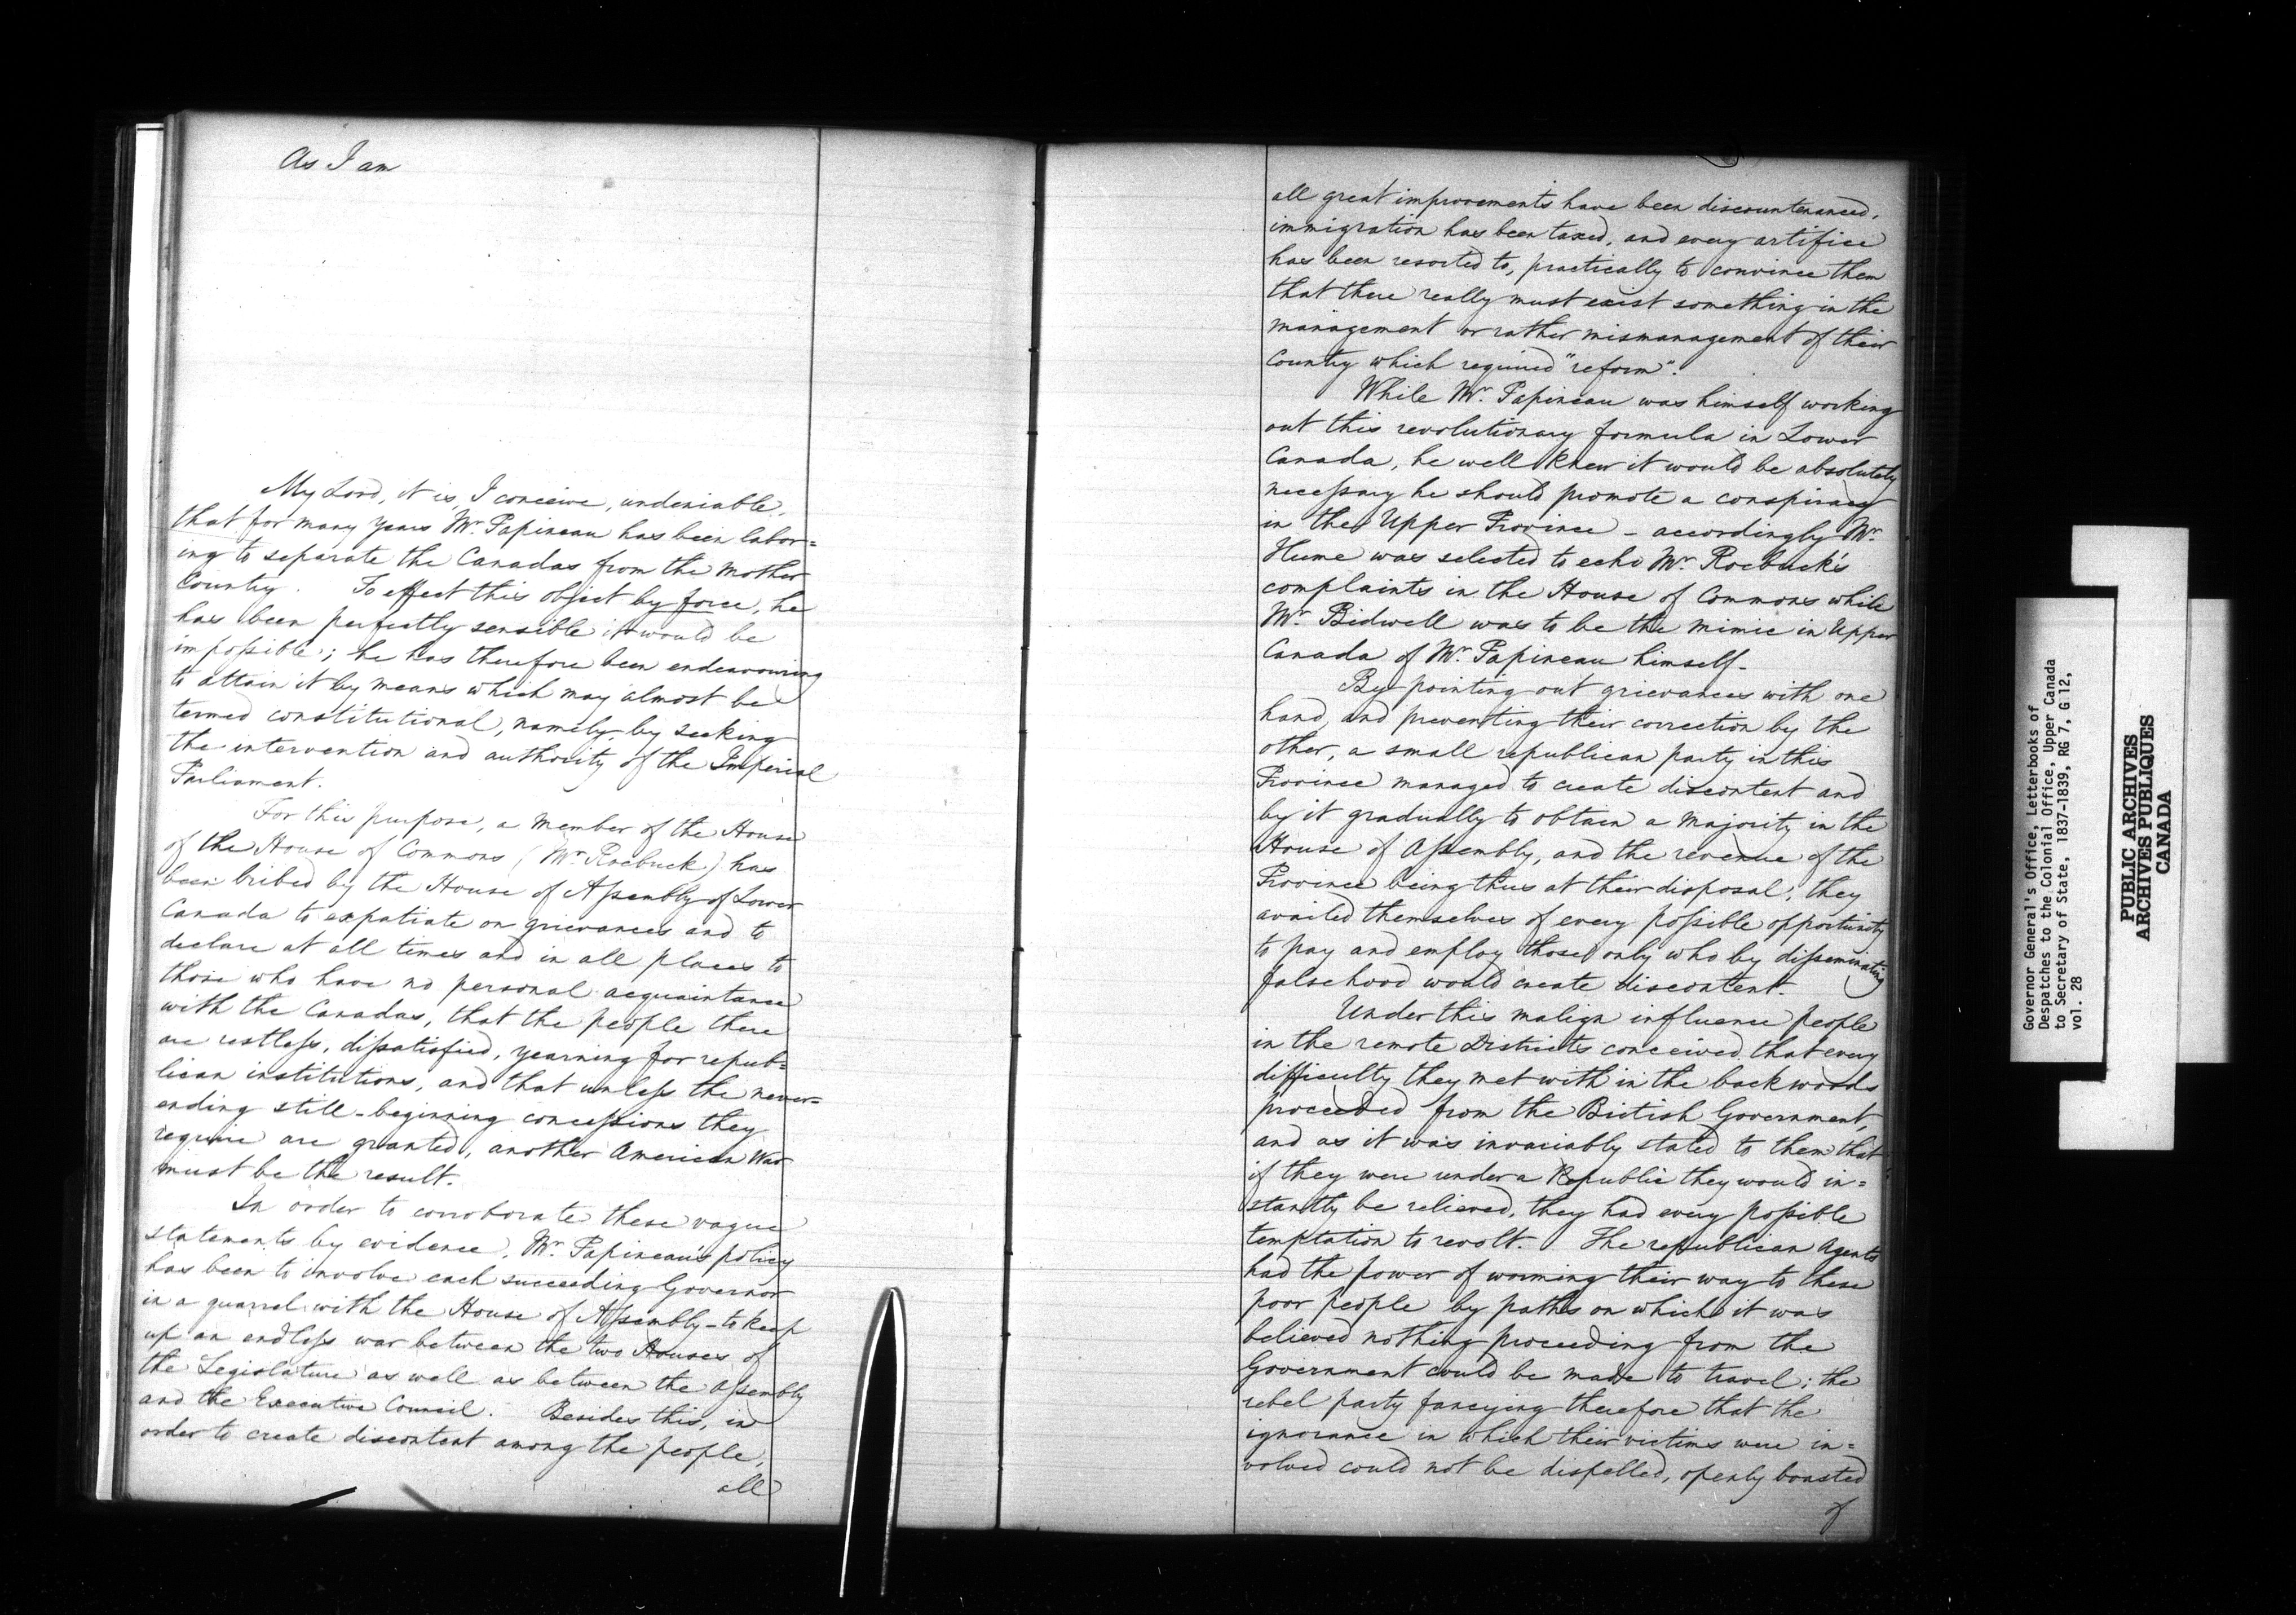 As I am
My Lord, it is, I conceive, undeniable,
that for many years Mr. Papineau has been labor=
ing to separate the Canadas from the Mother
Country. To effect this object by force, he
has been perfectly sensible it would be
impossible; he has therefore been endeavouring
to attain it by means which may almost be
termed constitutional, namely, by seeking
the intervention and authority of the Imperial
Parliament.
For this purpose, a Member of the House
of the House of Commons (Mr. Roebuck) has
been bribed by the House of Assembly of Lower
Canada to expatiate on grievances and to
declare at all times and in all places to
those who have no personal acquaintance
with the Canadas, that the people there
are restless, dissatisfied, yearning for repub=
lican institutions, and that unless the never=
ending still-beginning concessions they
require are granted, another American War
must be the result.
In order to corroborate these vague
statements by evidence, Mr. Papineau's policy
has been to involve each succeeding Governor
in a quarrel with the House of Assembly - to keep
up an endless war between the two Houses of
the Legislature as well as between the Assembly
and the Executive Council. Besides this, in
order to create discontent among the people,
all
all great improvements have been discountenanced,
immigration has been taxed, and every artifice
has been resorted to, practically to convince them
that there really must exist something in the
management or rather mismanagement of their
Country which required "reform".
While Mr. Papineau was himself working
out this revolutionary formula in Lower
Canada, he well knew it would be absolutely
necessary he should promote a conspiracy
in the Upper Province - accordingly Mr.
Hume was selected to echo Mr. Roebuck's
complaints in the House of Commons while
Mr. Bidwell was to be the mimic in Upper
Canada of Mr. Papineau himself -
By pointing out grievances with one
hand, and preventing their correction by the
other, a small republican party in this
Province managed to create discontent and
by it gradually to obtain a majority in the
House of Assembly, and the revenue of the
Province being thus at their disposal, they
availed themselves of every possible opportunity
to pay and employ those only who by disseminating
falsehood would create discontent.
Under this malign influence people
in the remote Districts conceived that every
difficulty they met with in the backwoods
proceeded from the British Government,
and as it was invariably stated to them that
if they were under a Republic they would in=
stantly be relieved, they had every possible
temptation to revolt. The republican Agents
had the power of worming their way to these
poor people by paths on which it was
believed nothing proceeding from the
Government could be made to travel; the
rebel party fancying therefore that the
ignorance in which their victims were in=
volved could not be dispelled, openly boasted
of
Governor General's Office, Letterbooks of
Despatches to the Colonial Office, Upper Canada
to Secretary of State, 1837-1839, RG 7, G 12,
vol. 28
PUBLIC ARCHIVES
ARCHIVES PUBLIQUES
CANADA